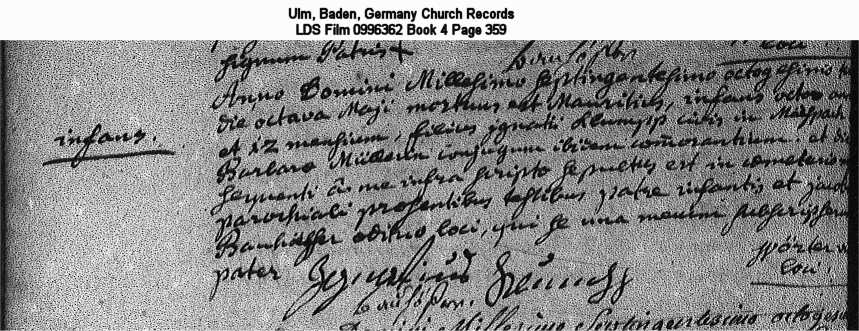 Ulm, Baden, Germany Church Records
LDS Film 0996362 Book 4 Page 359
signum Patris +
loci
Anno Domini Millesimo septingentesimo octogesimo
die octava Maji mortuus est Mauritius, infans octo
infans.
et 12 mensium, filius ignatii Klumpp civis in
Barbara Müllerin conjugum ibidem commorantium. et die
sequenti a me infra scripto sepultus est in cemeterio
parochiali praesentibus testibus patre infantis et
Bauhöffer aedituo loci, qui se una mecum
pater Ignatius Klumpp
loci.
Domini Millesimo Septingentesimo